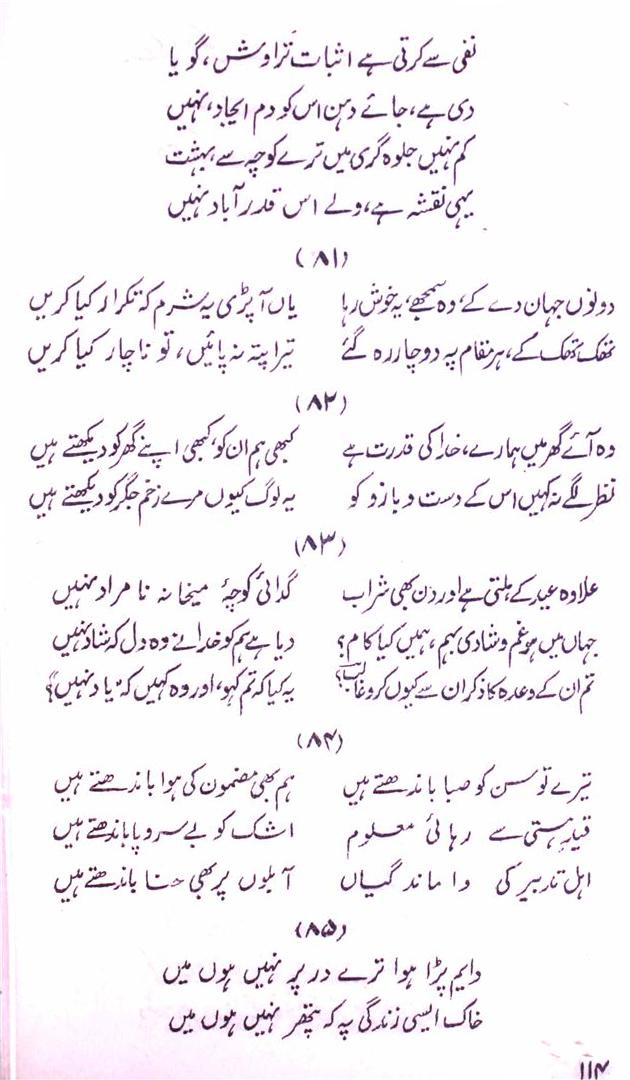 نفی سے کرتی ہے اثبات تراوش، گویا
دی ہے، جائے دہن اس کو دم ایجاد، نہیں
کم نہیں جلوہ گری میں ترے کوچہ سے بہشت
یہی نقشہ ہے، ولے اس قدر آباد نہیں
(۸۱)
دونوں جہان دے کے، وہ سمجھے، یہ خوش رہا یاں آپڑی یہ شرم کہ تکرار کیا کریں
تھک تھک کے، ہر مقام پہ دو چار رہ گئے تیرا پتہ نہ پائیں، تو ناچار کیا کریں
(۸۲)
وہ آئے گھر میں ہمارے، خدا کی قدرت ہے کبھی ہم ان کو، کبھی اپنے گھر کو دیکھتے ہیں
نظر لگے نہ کہیں اس کے دست و بازو کو یہ لوگ کیوں مرے زخم جگر کو دیکھتے ہیں
(۸۳)
علاوہ عید کے ملتی ہے اور دن بھی شراب گدائے کوچۂ میخانہ نامراد نہیں
جہاں میں ہو غم و شادی بہم، ہمیں کیا کام؟ دیا ہے ہم کو خدا نے وہ دل کہ شاد نہیں
تم ان کے وعدہ کا ذکر ان سے کیوں کرو غالب؟ یہ کیا کہ تم کہو، اور وہ کہیں کہ "یاد نہیں"؟
(۸۴)
تیرے توسن کو صبا باندھتے ہیں ہم بھی مضمون کی ہوا باندھتے ہیں
قید ہستی سے رہائی معلوم اشک کو بے سر و پا باندھتے ہیں
اہل تدبیر کی واماندگیاں آبلوں پر بھی حنا باندھتے ہیں
(۸۵)
دایم پڑا ہوا ترے در پر نہیں ہوں میں
خاک ایسی زندگی پہ کہ پتھر نہیں ہوں میں
۱۱۴